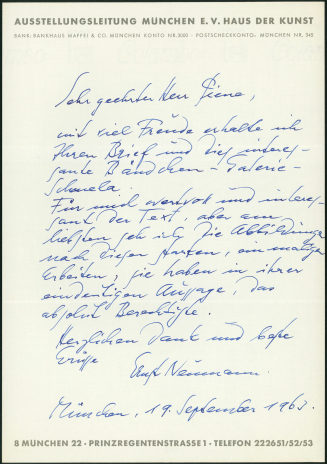 AUSSTELLUNGSLEITUNG MÜNCHEN E. V. HAUS DER KUNST
BANK: BANKHAUS MAFFEI & CO. MÜNCHEN KONTO NR. 3001 · POSTSCHECKKONTO: MÜNCHEN NR. 545
Sehr geehrter Herr Piene,
mit viel Freude erhalte ich
Ihren Brief und dies interes-
sante Bändchen - Galerie-
Schmela.
Für mich wertvoll und interes-
sant der Text, aber am
liebsten seh ich die Abbildungen
nach diesen starken, einmaligen
Arbeiten, sie haben in ihrer
eindeutigen Aussage, das
absolut Berechtigte.
Herzlichen Dank und beste
Grüsse
Ernst Neumann.
München, 19. September 1963.
8 MÜNCHEN 22 · PRINZREGENTENSTRASSE 1 · TELEFON 222651/52/53